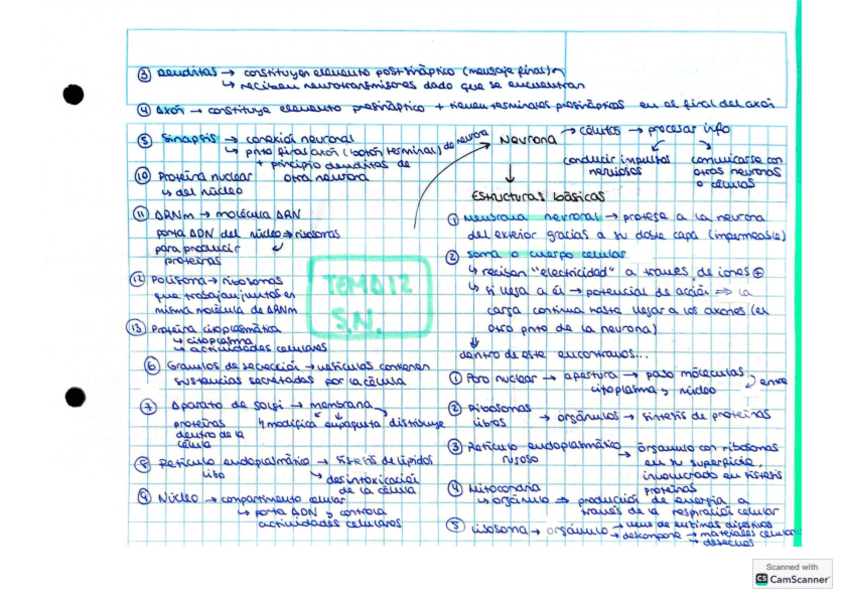 ③ Dendritas → constituyen elemento postsináptico (mensaje final)
↳ reciben neurotransmisores dado que se encuentran
④ Axón → constituye elemento presináptico + tienen terminales presinápticos en el final del axón
⑤ Sinapsis → conexión neuronal
↳ pnto final axón (botón terminal) de neurona
+ principio dendritas de
otra neurona
⑩ Proteína nuclear
↳ del núcleo
⑪ ARNm → molécula ARN
porta ADN del núcleo → ribosomas
para producir
proteínas
⑫ Polisoma → ribosomas
que trabajan juntos en
misma molécula de ARNm
⑬ Proteína citoplasmática
↳ citoplasma
↳ actividades celulares
⑥ Gránulos de secreción → vesículas contienen
sustancias secretadas por la célula
⑦ Aparato de Golgi → membrana
proteínas ↳ modifica empaqueta distribuye
dentro de la
célula
⑧ Retículo endoplasmático → síntesis de lípidos
liso ↳ desintoxicación
de la célula
⑨ Núcleo → compartimento celular
↳ porta ADN y controla
actividades celulares
TEMA 12
S.N.
Neurona → células → procesar info
conducir impulsos
nerviosos
comunicarse con
otras neuronas
o células
Estructuras básicas
① Membrana neuronal → protege a la neurona
del exterior gracias a su doble capa (impermeable)
② soma o cuerpo celular
↳ reciben "electricidad" a traves de iones ⊕
↳ si llega a él → potencial de acción ⇒ la
carga continua hasta llegar a los axones (en
otro pnto de la neurona)
dentro de este encontramos...
① Poro nuclear → apertura → paso moléculas entre
citoplasma y núcleo
② Ribosomas
libres → orgánulos → síntesis de proteínas
③ Retículo endoplasmático
rugoso → orgánulo con ribosomas
en su superficie,
involucrado en síntesis
proteínas
④ Mitocondria
↳ orgánulo ⇒ producción de energía a
través de la respiración celular
⑤ Lisosoma → orgánulo → lleno de enzimas digestivas
↳ descompone → materiales celulares
↳ desechos
Scanned with
CS CamScanner